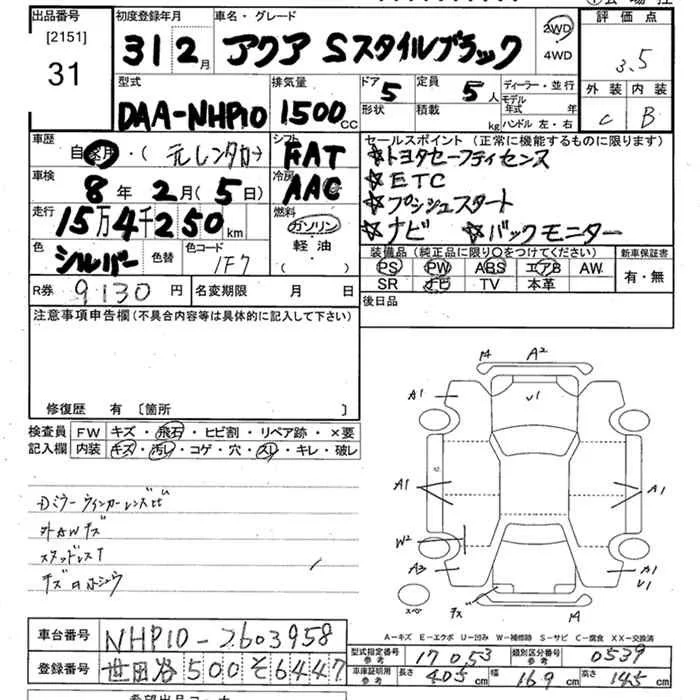 出品番号 [2151] 31
初度登録年月 31 2月
車名・グレード アクア Sスタイルブラック
2WD ・ 4WD
評価点 3.5
外装 C 内装 B
型式 DAA-NHP10
排気量 1500 cc
ドア 5 形状
定員 5人 積載 kg
ディーラー・並行
モデル年式 年
ハンドル 左・右
車歴 自家用・( 元レンタカー )
シフト FAT
車検 8年 2月( 5日)
冷房 AAC
走行 15万4千250km
燃料 ガソリン 軽油 ( )
色 シルバー 色替 色コード 1F7
セールスポイント (正常に機能するものに限ります)
☆トヨタセーフティセンス
☆ETC
☆プッシュスタート
☆ナビ ☆バックモニター
装備品 (純正品に限り○をつけてください) 新車保証書
PS PW ABS エアB AW 有・無
SR ナビ TV 本革
R券 9130 円 名変期限 月 日
後日品
注意事項申告欄 (不具合内容等は具体的に記入して下さい)
修復歴 有 〔箇所 〕
検査員記入欄 FW キズ・飛石・ヒビ割・リペア跡・×要
内装 キズ・汚レ・コゲ・穴・スレ・キレ・破レ
スタッドレスT
14 A2
A1 U1
A1 A1
W2
A3 A1 U1
スペア キズ 14
A-キズ E-エクボ U-凹み W-補修跡 S-サビ C-腐食 XX-交換済
車台番号 NHP10-2603958
登録番号 世田谷 500 そ 6447
型式指定番号 参考 17053 類別区分番号 参考 0539
車庫証明用 参考 長さ 405 cm 幅 169 cm 高さ 145 cm
希望出品コーナー